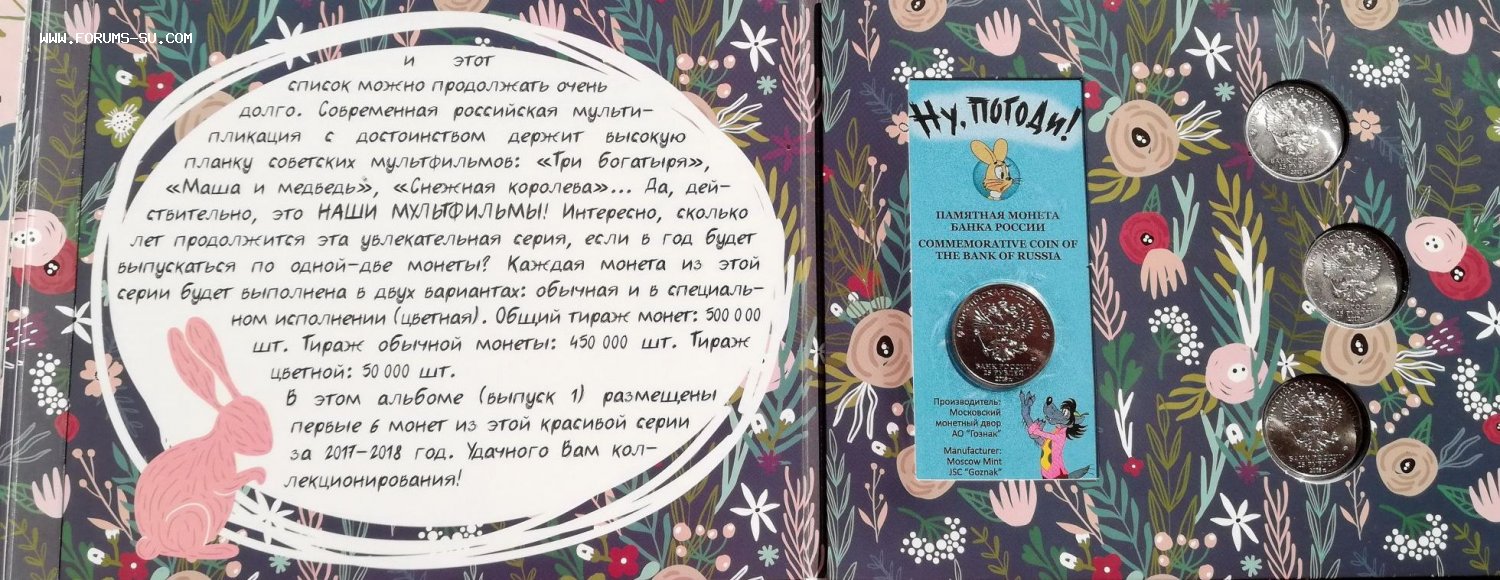 www.forums-su.com
и этот
список можно продолжать очень
долго. Современная российская мульти-
пликация с достоинством держит высокую
планку советских мультфильмов: «Три богатыря»,
«Маша и медведь», «Снежная королева»... Да, дей-
ствительно, это НАШИ МУЛЬТФИЛЬМЫ! Интересно, сколько
лет продолжится эта увлекательная серия, если в год будет
выпускаться по одной-две монеты? Каждая монета из этой
серии будет выполнена в двух вариантах: обычная и в специаль-
ном исполнении (цветная). Общий тираж монет: 500 000
шт. Тираж обычной монеты: 450 000 шт. Тираж
цветной: 50 000 шт.
В этом альбоме (выпуск 1) размещены
первые 6 монет из этой красивой серии
за 2017-2018 год. Удачного Вам кол-
лекционирования!
Ну, погоди!
ПАМЯТНАЯ МОНЕТА
БАНКА РОССИИ
COMMEMORATIVE COIN OF
THE BANK OF RUSSIA
БАНК РОССИИ
25 РУБЛЕЙ
2018 г.
Производитель:
Московский
монетный двор
АО "Гознак"
Manufacturer:
Moscow Mint
JSC "Goznak"